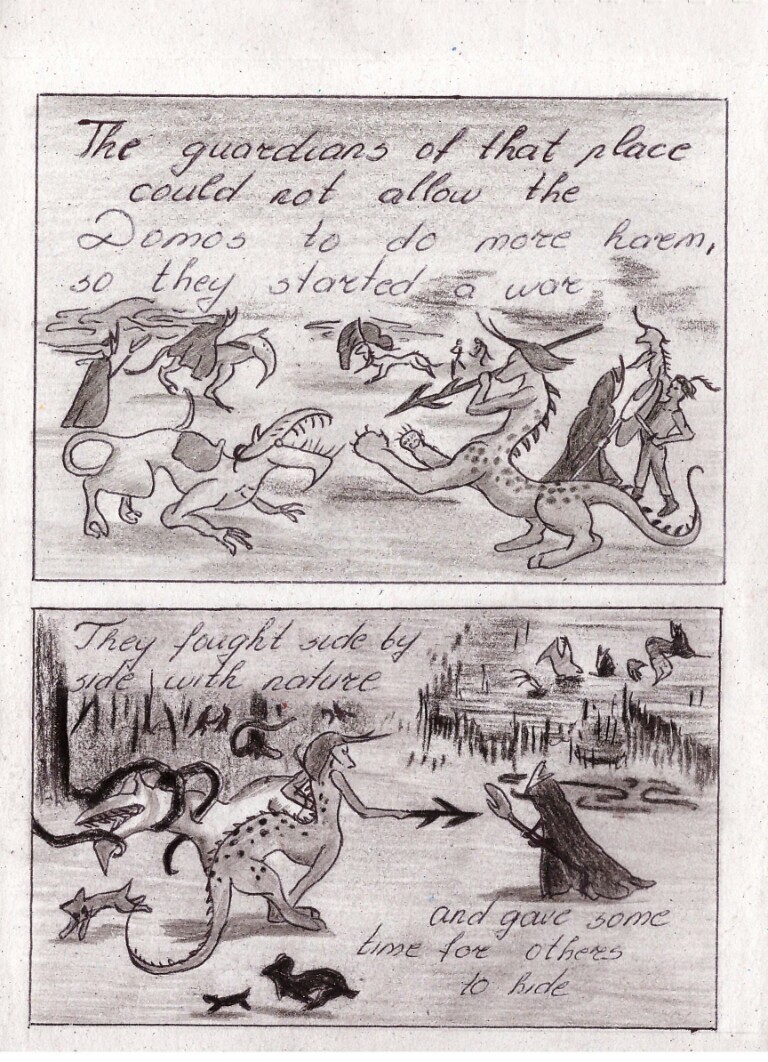 The guardians of that place
could not allow the
Domos to do more harm,
so they started a war.
They fought side by
side with nature
and gave some
time for others
to hide